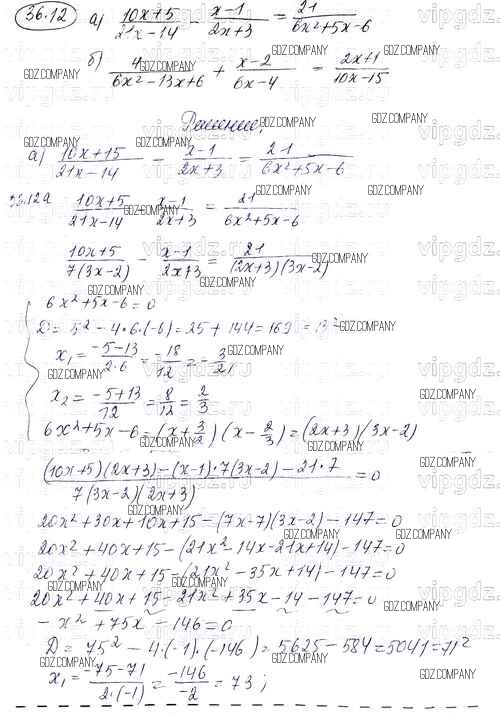 36.12 а) (10x+5)/(21x-14) - (x-1)/(2x+3) = 21/(6x²+5x-6)
б) 4/(6x²-13x+6) + (x-2)/(6x-4) = (2x+1)/(10x-15)
Решение.
а) (10x+15)/(21x-14) - (x-1)/(2x+3) = 21/(6x²+5x-6)
36.12а (10x+5)/(21x-14) - (x-1)/(2x+3) = 21/(6x²+5x-6)
(10x+5)/(7(3x-2)) - (x-1)/(2x+3) = 21/((2x+3)(3x-2))
6x²+5x-6=0
D = 5²-4·6·(-6)=25+144=169=13²
x₁ = (-5-13)/(2·6) = -18/12 = -3/2
x₂ = (-5+13)/12 = 8/12 = 2/3
6x²+5x-6=(x+3/2)(x-2/3)=(2x+3)(3x-2)
((10x+5)(2x+3)-(x-1)·7(3x-2)-21·7)/(7(3x-2)(2x+3)) = 0
20x²+30x+10x+15-(7x-7)(3x-2)-147=0
20x²+40x+15-(21x²-14x-21x+14)-147=0
20x²+40x+15-(21x²-35x+14)-147=0
20x²+40x+15-21x²+35x-14-147=0
-x²+75x-146=0
D = 75²-4·(-1)·(-146)=5625-584=5041=71²
x₁ = (-75-71)/(2·(-1)) = -146/-2 = 73;
GDZ.COMPANY
vipgdz.ru